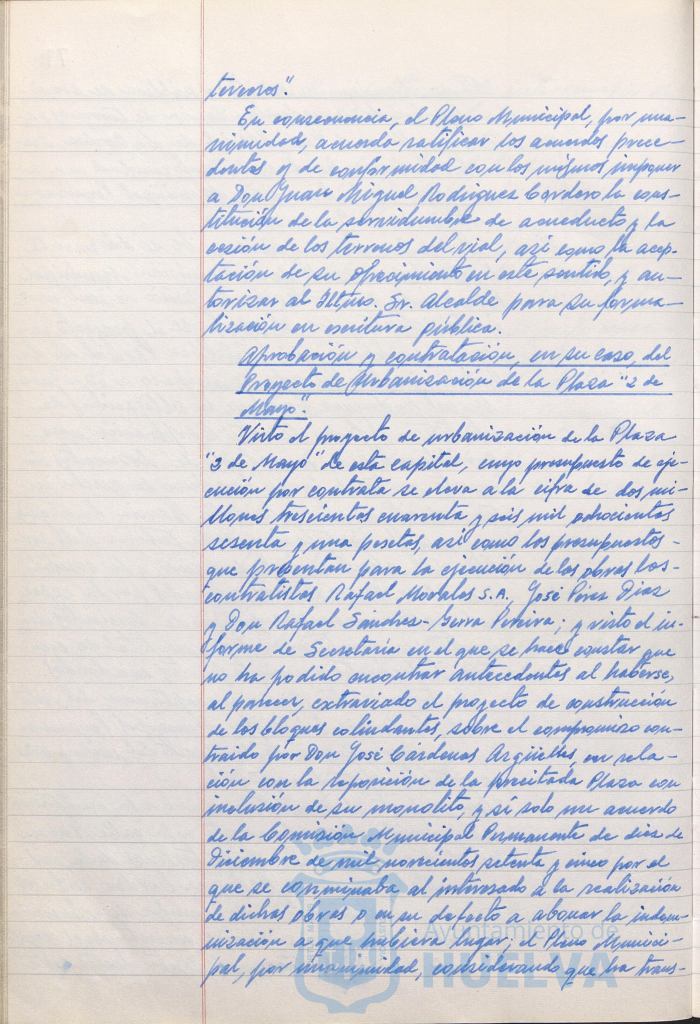 terceros".
En consecuencia, el Pleno Municipal, por una-
nimidad, acuerda ratificar los acuerdos prece-
dentes y de conformidad con los mismos imponer
a Don Juan Miguel Rodríguez Cordero la cons-
titución de la servidumbre de acueducto y la
cesión de los terrenos del vial, así como la acep-
tación de su ofrecimiento en este sentido, y au-
torizar al Iltmo. Sr. Alcalde para su forma-
lización en escritura pública.
Aprobación y contratación, en su caso, del
Proyecto de Urbanización de la Plaza "2 de
Mayo".
Visto el proyecto de urbanización de la Plaza
"2 de Mayo" de esta capital, cuyo presupuesto de eje-
cución por contrata se eleva a la cifra de dos mi-
llones trescientos cuarenta y seis mil ochocientos
sesenta y una pesetas, así como los presupuestos-
que presentan para la ejecución de las obras los-
contratistas Rafael Morales S.A., José Pérez Díaz
y Don Rafael Sánchez-Serra; y visto el in-
forme de Secretaría en el que se hace constar que
no ha podido encontrar antecedentes al haberse,
al parecer, extraviado el proyecto de construcción
de los bloques colindantes, sobre el compromiso con-
traido por Don José Cárdenas Argüelles, en rela-
ción con la reposición de la precitada Plaza con
inclusión de su monolito, y sí solo un acuerdo
de la Comisión Municipal Permanente de diez de
Diciembre de mil novecientos setenta y cinco por el
que se conminaba al interesado a la realización
de dichas obras o en su defecto a abonar la indem-
nización a que hubiera lugar; el Pleno Munici-
pal, por unanimidad, considerando que ha trans-
Ayuntamiento de
HUELVA